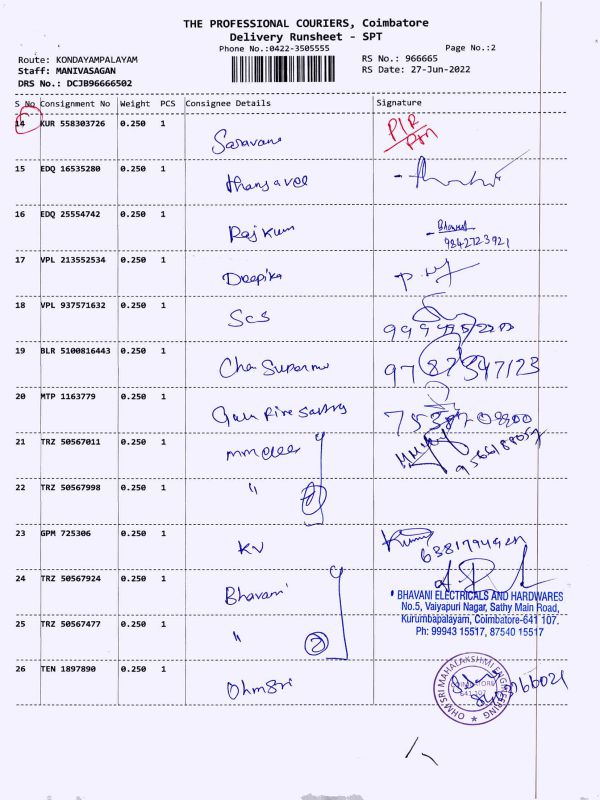 THE PROFESSIONAL COURIERS, Coimbatore
Delivery Runsheet - SPT
Phone No.:0422-3505555
Page No.:2
Route: KONDAYAMPALAYAM
RS No.: 966665
Staff: MANIVASAGAN
RS Date: 27-Jun-2022
DRS No.: DCJB96666502
S No Consignment No Weight PCS Consignee Details Signature
14 KUR 558303726 0.250 1 Saravana
15 EDQ 16535280 0.250 1
16 EDQ 25554742 0.250 1 Rajkum Bharat
9842723921
17 VPL 213552534 0.250 1 Deepika
18 VPL 937571632 0.250 1 SCS
19 BLR 5100816443 0.250 1 Cha Superme
20 MTP 1163779 0.250 1
21 TRZ 50567011 0.250 1
22 TRZ 50567998 0.250 1 " 2
23 GPM 725306 0.250 1 KV
24 TRZ 50567924 0.250 1 Bhavani
BHAVANI ELECTRICALS AND HARDWARES
No.5, Vaiyapuri Nagar, Sathy Main Road,
25 TRZ 50567477 0.250 1 " 2 Kurumbapalayam, Coimbatore-641 107.
Ph: 99943 15517, 87540 15517
26 TEN 1897890 0.250 1 Ohmsri
OHM SRI MAHALAKSHMI ENGINEERING